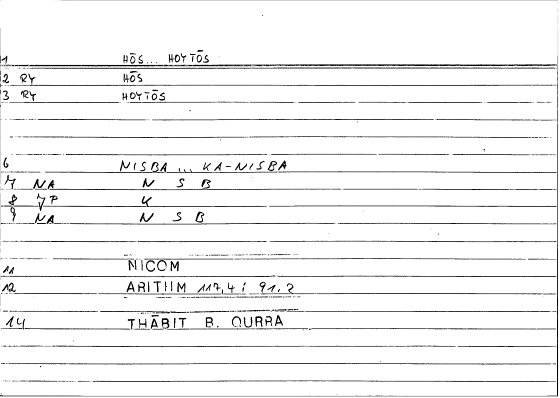 1 HŌS... HOYTŌS
2 RY HŌS
3 RY HOYTŌS
6 NISBA ... KA-NISBA
7 NA N S B
8 7P K
9 NA N S B
11 NICOM
12 ARITIIM 117,4; 91.2
14 THĀBIT B. QURRA